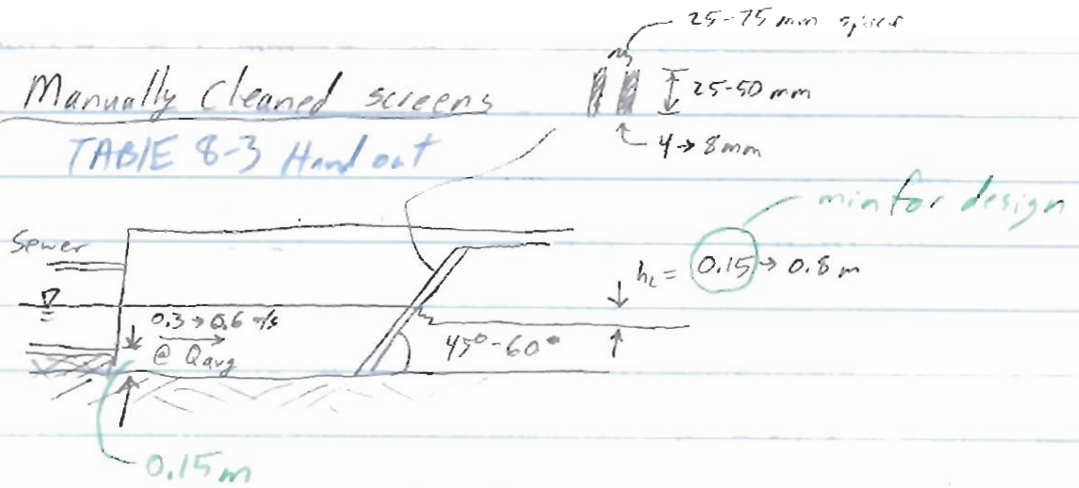 25-75 mm space
Manually Cleaned screens
25-50 mm
TABLE 8-3 Hand out
4→8mm
min for design
Sewer
h_L = 0.15 → 0.8 m
0.3→0.6 m/s
@ Qavg
45°-60°
0.15 m